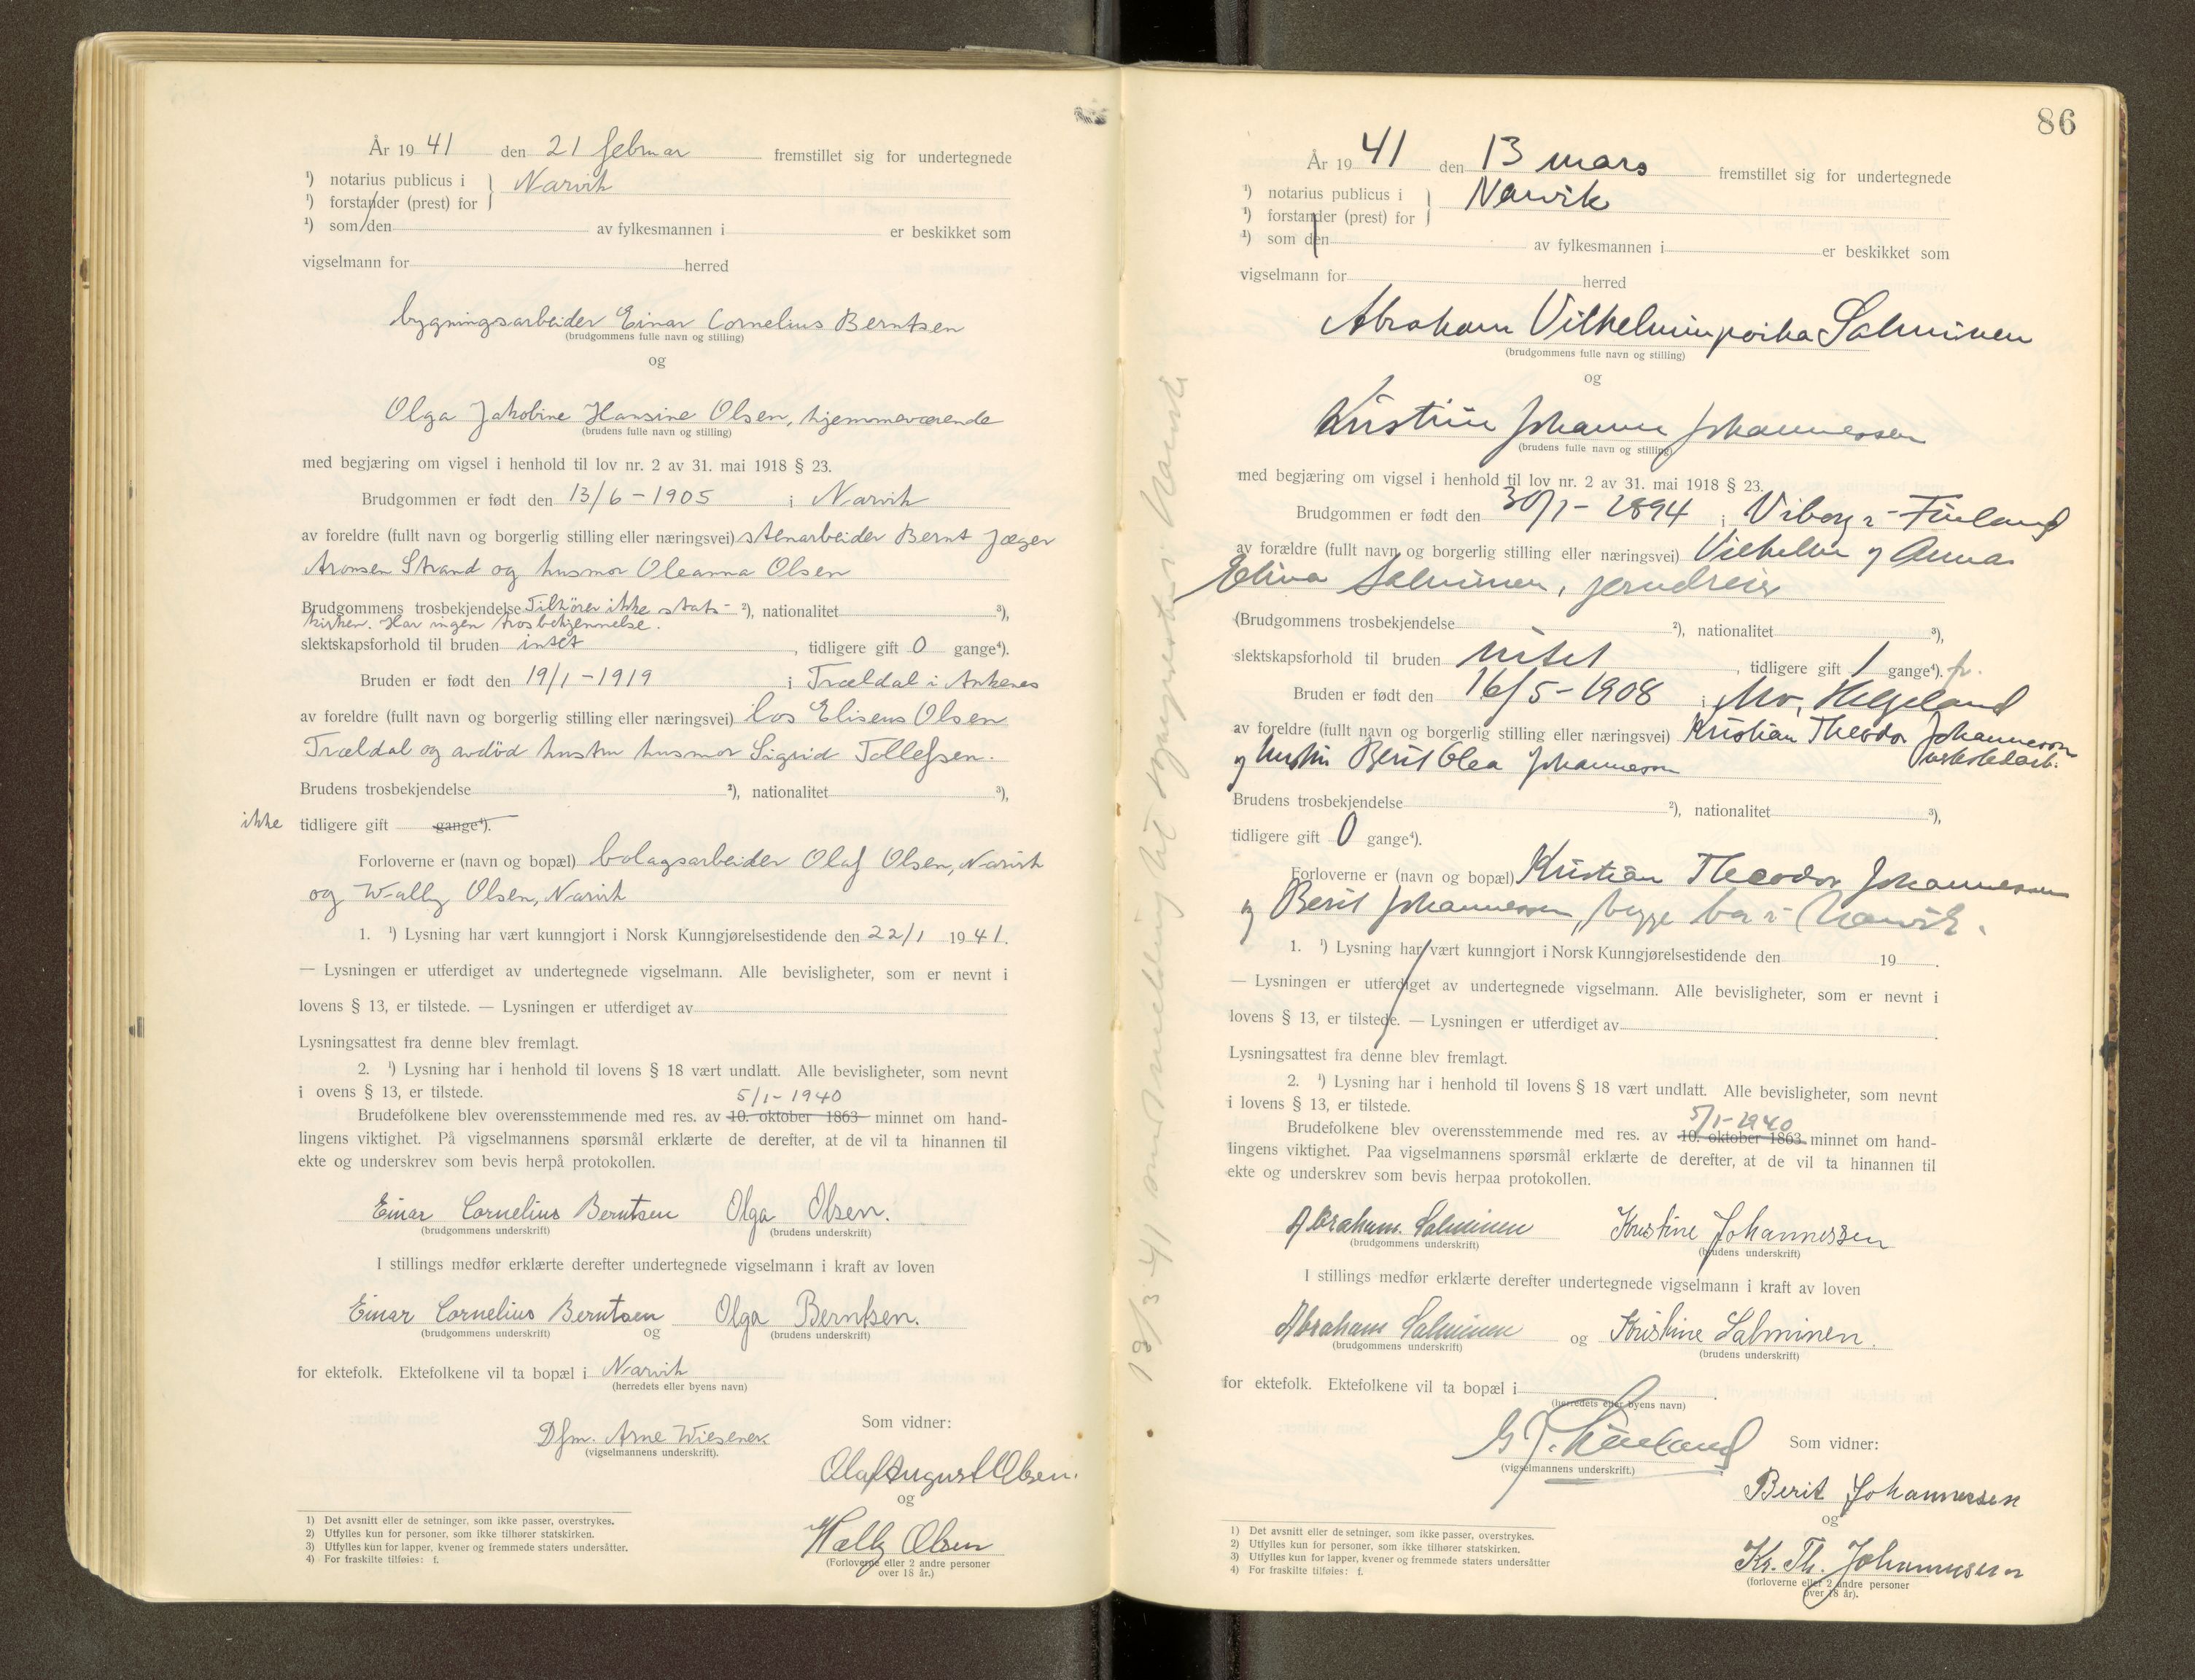 År 1941 den 21 februar fremstillet sig for undertegnede
¹) notarius publicus i } Narvik
¹) forstander (prest) for
¹) som den av fylkesmannen i er beskikket som
vigselmann for herred
bygningsarbeider Einar Cornelius Berntsen
(brudgommens fulle navn og stilling)
og
Olga Jakobine Hansine Olsen, hjemmeværende
(brudens fulle navn og stilling)
med begjæring om vigsel i henhold til lov nr. 2 av 31. mai 1918 § 23.
Brudgommen er født den 13/6 - 1905 i Narvik
av foreldre (fullt navn og borgerlig stilling eller næringsvei) stenarbeider Bernt Jæger
Aronsen Strand og husmor Oleanna Olsen
Brudgommens trosbekjendelse Tilhører ikke stats- ²), nationalitet ³),
kirken. Har ingen trosbekjennelse.
slektskapsforhold til bruden intet, tidligere gift 0 gange⁴).
Bruden er født den 19/1 - 1919 i Trældal i Ankenes
av foreldre (fullt navn og borgerlig stilling eller næringsvei) los Eliseus Olsen
Trældal og avdød hustru husmor Sigrid Tollefsen.
Brudens trosbekjendelse ²), nationalitet ³),
ikke tidligere gift gange⁴).
Forloverne er (navn og bopæl) bolagsarbeider Olaf Olsen, Narvik
og Wally Olsen, Narvik
1. ¹) Lysning har vært kunngjort i Norsk Kunngjørelsestidende den 22/1 1941.
— Lysningen er utferdiget av undertegnede vigselmann. Alle bevisligheter, som er nevnt i
lovens § 13, er tilstede. — Lysningen er utferdiget av
Lysningsattest fra denne blev fremlagt.
2. ¹) Lysning har i henhold til lovens § 18 vært undlatt. Alle bevisligheter, som nevnt
i ovens § 13, er tilstede.
5/1 - 1940
Brudefolkene blev overensstemmende med res. av 10. oktober 1863 minnet om hand-
lingens viktighet. På vigselmannens spørsmål erklærte de derefter, at de vil ta hinannen til
ekte og underskrev som bevis herpå protokollen.
Einar Cornelius Berntsen Olga Olsen.
(brudgommens underskrift) (brudens underskrift)
I stillings medfør erklærte derefter undertegnede vigselmann i kraft av loven
Einar Cornelius Berntsen og Olga Berntsen.
(brudgommens underskrift) (brudens underskrift)
for ektefolk. Ektefolkene vil ta bopæl i Narvik
(herredets eller byens navn)
Som vidner:
Dfm. Arne Wiesener
(vigselmannens underskrift).
Olaf August Olsen.
og
Wally Olsen
(Forloverne eller 2 andre personer
over 18 år.)
1) Det avsnitt eller de setninger, som ikke passer, overstrykes.
2) Utfylles kun for personer, som ikke tilhører statskirken.
3) Utfylles kun for lapper, kvener og fremmede staters undersåtter.
4) For fraskilte tilføies: f.
86
År 1941 den 13 mars fremstillet sig for undertegnede
¹) notarius publicus i } Narvik
¹) forstander (prest) for
¹) som den av fylkesmannen i er beskikket som
vigselmann for herred
Abraham Vilhelminpoika Salminen
(brudgommens fulle navn og stilling)
og
Kristine Johanne Johannessen
(brudens fulle navn og stilling)
med begjæring om vigsel i henhold til lov nr. 2 av 31. mai 1918 § 23.
Brudgommen er født den 30/1 - 1894 i Viborg i Finland
av forældre (fullt navn og borgerlig stilling eller næringsvei) Vilhelm og Anna
Elina Salminen,
(Brudgommens trosbekjendelse ²), nationalitet ³),
slektskapsforhold til bruden intet, tidligere gift 1 gange⁴). fr.
Bruden er født den 16/5 - 1908 i Mo, Helgeland
av foreldre (fullt navn og borgerlig stilling eller næringsvei) Kristian Theodor Johannessen
og hustru Berit Olea Johannessen verkstedarb.
Brudens trosbekjendelse ²), nationalitet ³),
tidligere gift 0 gange⁴).
Forloverne er (navn og bopæl) Kristian Theodor Johannessen
og Berit Johannessen, begge bor i Narvik.
1. ¹) Lysning har vært kunngjort i Norsk Kunngjørelsestidende den 19 .
— Lysningen er utferdiget av undertegnede vigselmann. Alle bevisligheter, som er nevnt i
lovens § 13, er tilstede. — Lysningen er utferdiget av
Lysningsattest fra denne blev fremlagt.
2. ¹) Lysning har i henhold til lovens § 18 vært undlatt. Alle bevisligheter, som nevnt
i lovens § 13, er tilstede.
5/1-1940
Brudefolkene blev overensstemmende med res. av 10. oktober 1863 minnet om hand-
lingens viktighet. Paa vigselmannens spørsmål erklærte de derefter, at de vil ta hinannen til
ekte og underskrev som bevis herpaa protokollen.
Abraham Salminen Kristine Johannessen
(brudgommens underskrift) (brudens underskrift)
I stillings medfør erklærte derefter undertegnede vigselmann i kraft av loven
Abraham Salminen og Kristine Salminen.
(brudgommens underskrift) (brudens underskrift)
for ektefolk. Ektefolkene vil ta bopæl i
(herredets eller byens navn)
Som vidner:
(vigselmannens underskrift.)
Berit Johannessen
og
Kr. Th. Johannessen
(forloverne eller 2 andre personer
over 18 år).
1) Det avsnitt eller de setninger, som ikke passer, overstrykes.
2) Utfylles kun for personer, som ikke tilhører statskirken.
3) Utfylles kun for lapper, kvener og fremmede staters undersåtter
4) For fraskilte tilføies: f.
13/3-41 sendt melding til sogneprest Narvik